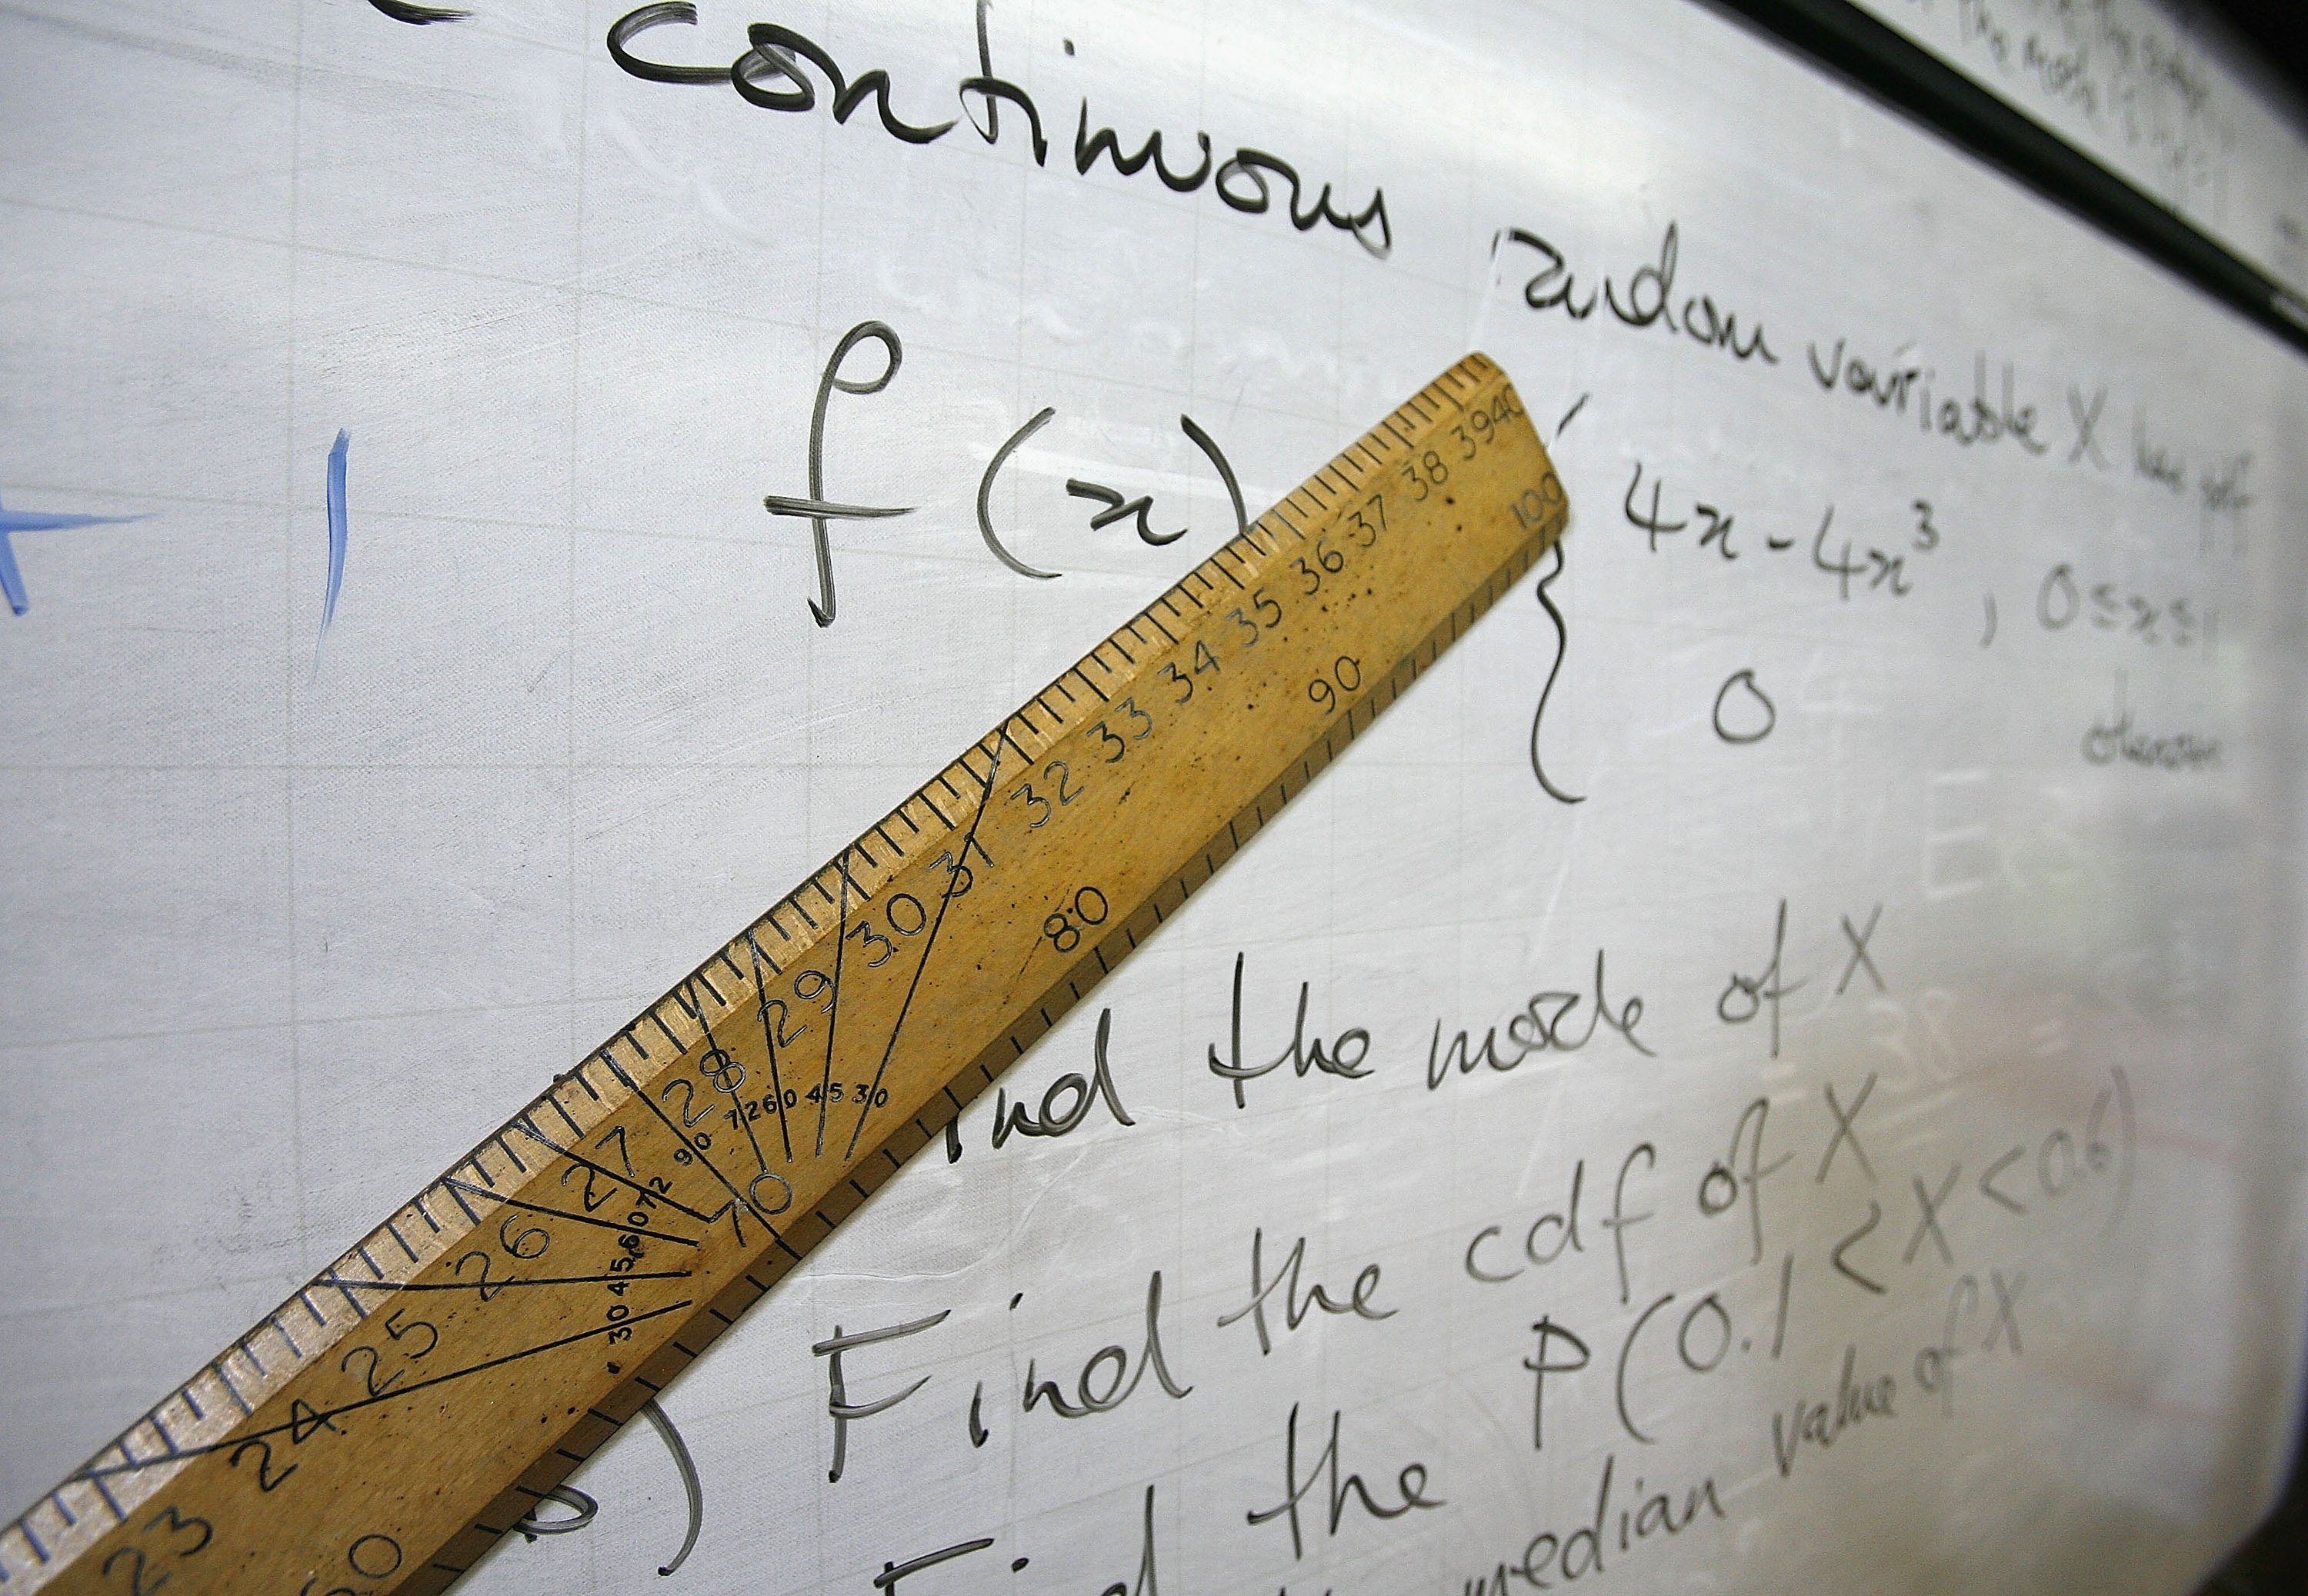 continuous random variable X has pdf
+ 1
f(x) { 4x - 4x³, 0≤x≤1
0 otherwise
ind the mode of X
b) Find the cdf of X
Find the P(0.1 < X < 0.6)
median value of X
23 24 25 26 27 28 29 30 31 32 33 34 35 36 37 38 39 40
30 45 60 72 90 72 60 45 30
60 70 80 90 100